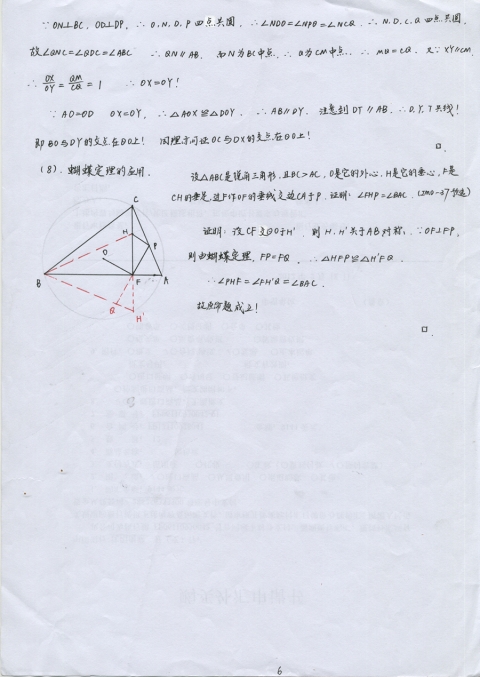 ∵ ON⊥BC, OD⊥DP, ∴ O, N, D, P 四点共圆, ∴ ∠NDO=∠NPO=∠NCQ, ∴ N, D, C, Q 四点共圆,
故∠QNC=∠QDC=∠ABC ∴ QN∥AB, 而N为BC中点, ∴ Q为CM中点, ∴ MQ=CQ, 又∵ XY∥CM,
∴ OX/OY = QM/CQ = 1 ∴ OX=OY!
∵ AO=OD OX=OY, ∴ △AOX≌△DOY, ∴ AB∥DY, 注意到 DT∥AB, ∴ D, Y, T 共线!
即BO与DY的交点在⊙O上! 同理亦可证OC与DX的交点在⊙O上!
□.
(8). 蝴蝶定理的应用.
设△ABC是锐角三角形, 且BC>AC, O是它的外心, H是它的垂心, F是
CH的垂足, 过F作OF的垂线交边CA于P. 证明: ∠FHP=∠BAC. (IMO-37预选)
证明: 设CF交⊙O于H', 则H, H'关于AB对称, ∵OF⊥FP,
则由蝴蝶定理, FP=FQ, ∴ △HFP≌△H'FQ
∴ ∠PHF=∠FH'Q=∠BAC.
故原命题成立!
□.
C
H
O
P
B
F
A
Q
H'
6